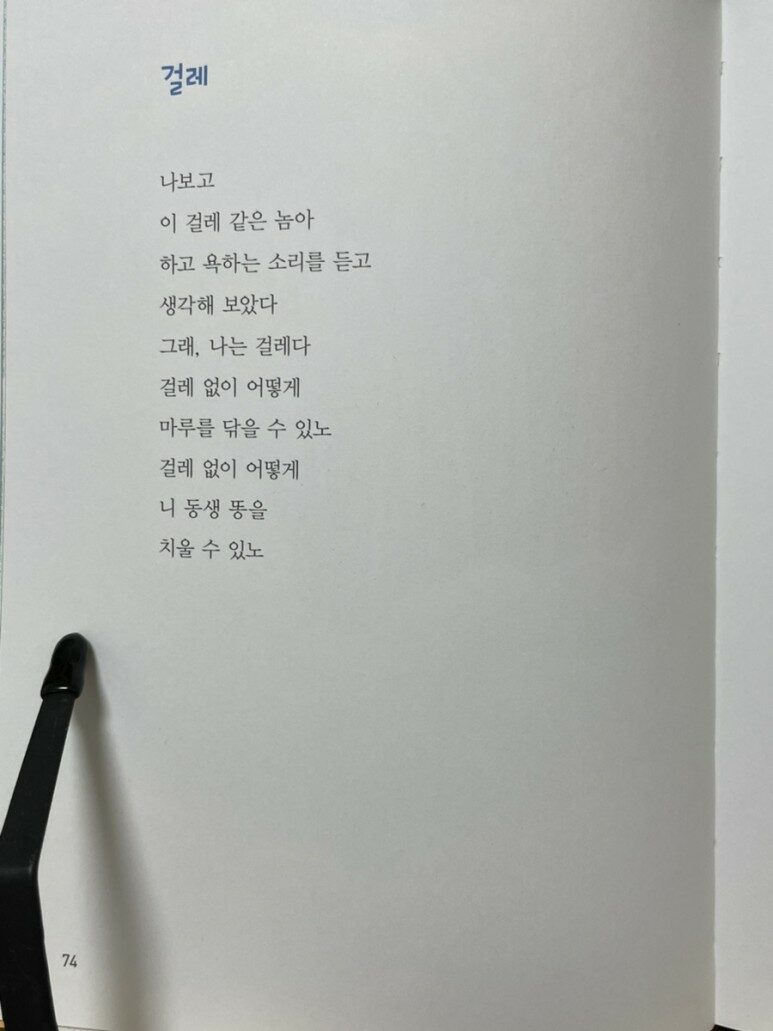 걸레
나보고
이 걸레 같은 놈아
하고 욕하는 소리를 듣고
생각해 보았다
그래, 나는 걸레다
걸레 없이 어떻게
마루를 닦을 수 있노
걸레 없이 어떻게
니 동생 똥을
치울 수 있노
74